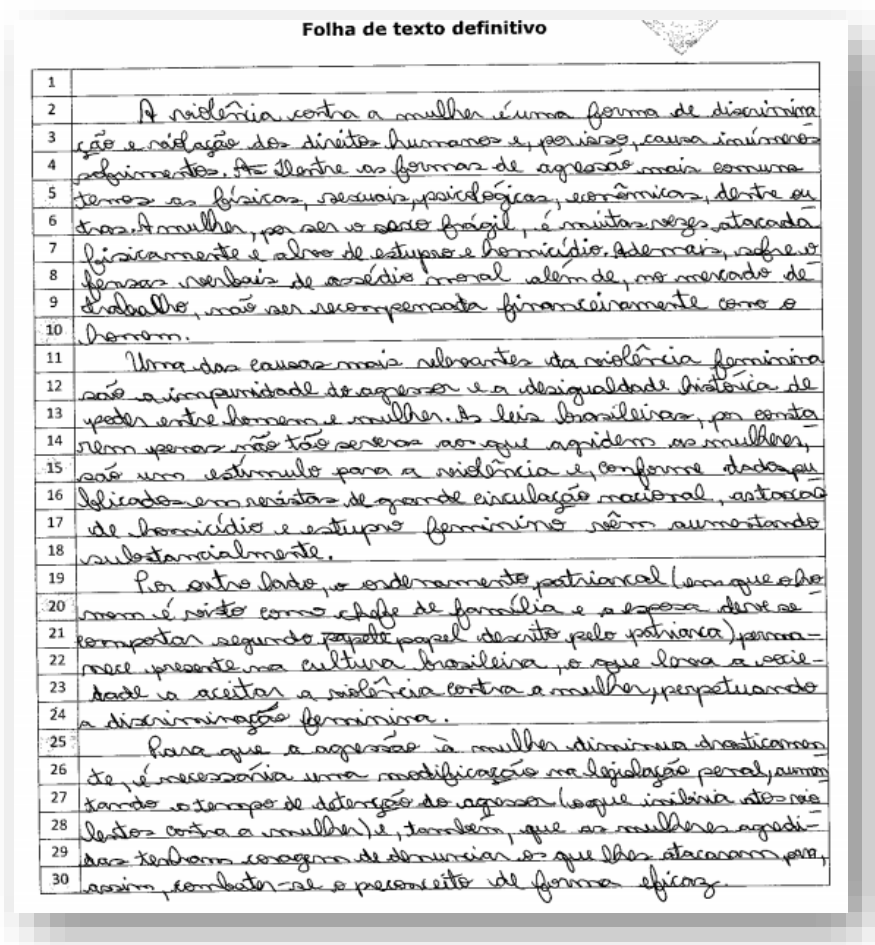 Folha de texto definitivo
1
2 A violência contra a mulher é uma forma de discrimina
3 ção e violação dos direitos humanos e, por isso, causa inúmeros
4 sofrimentos. As Dentre as formas de agressão mais comuns
5 temos as físicas, sexuais, psicológicas, econômicas, dentre ou
6 tras. A mulher, por ser o sexo frágil, é muitas vezes atacada
7 fisicamente e alvo de estupro e homicídio. Ademais, sofre o
8 fensas verbais de assédio moral além de, no mercado de
9 trabalho, não ser recompensada financeiramente como o
10 homem.
11 Uma das causas mais relevantes da violência feminina
12 são a impunidade do agressor e a desigualdade histórica de
13 poder entre homem e mulher. As leis brasileiras, por consta
14 rem penas não tão severas aos que agridem as mulheres,
15 são um estímulo para a violência e, conforme dados pu
16 blicados em revistas de grande circulação nacional, as taxas
17 de homicídio e estupro feminino vêm aumentando
18 substancialmente.
19 Por outro lado, o ordenamento patriarcal (em que o ho
20 mem é visto como chefe de família e a esposa deve se
21 comportar segundo papele papel descrito pelo patriarca) perma-
22 nece presente na cultura brasileira, o que leva a socie-
23 dade a aceitar a violência contra a mulher, perpetuando
24 a discriminação feminina.
25 Para que a agressão à mulher diminua drasticamen
26 te, é necessária uma modificação na legislação penal, aumen
27 tando o tempo de detenção do agressor (o que inibiria atos vio
28 lentos contra a mulher) e, também, que as mulheres agredi-
29 das tenham coragem de denunciar os que lhes atacaram para,
30 assim, combater-se o preconceito de forma eficaz.